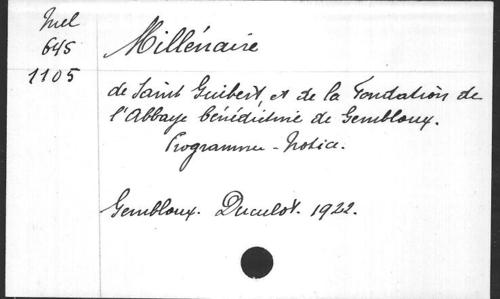 Mel
645
1105
Millénaire
de Saint Guibert, et de la Fondation de
l'Abbaye bénédictine de Gembloux.
Programme - Notice.
Gembloux. Duculot. 1922.